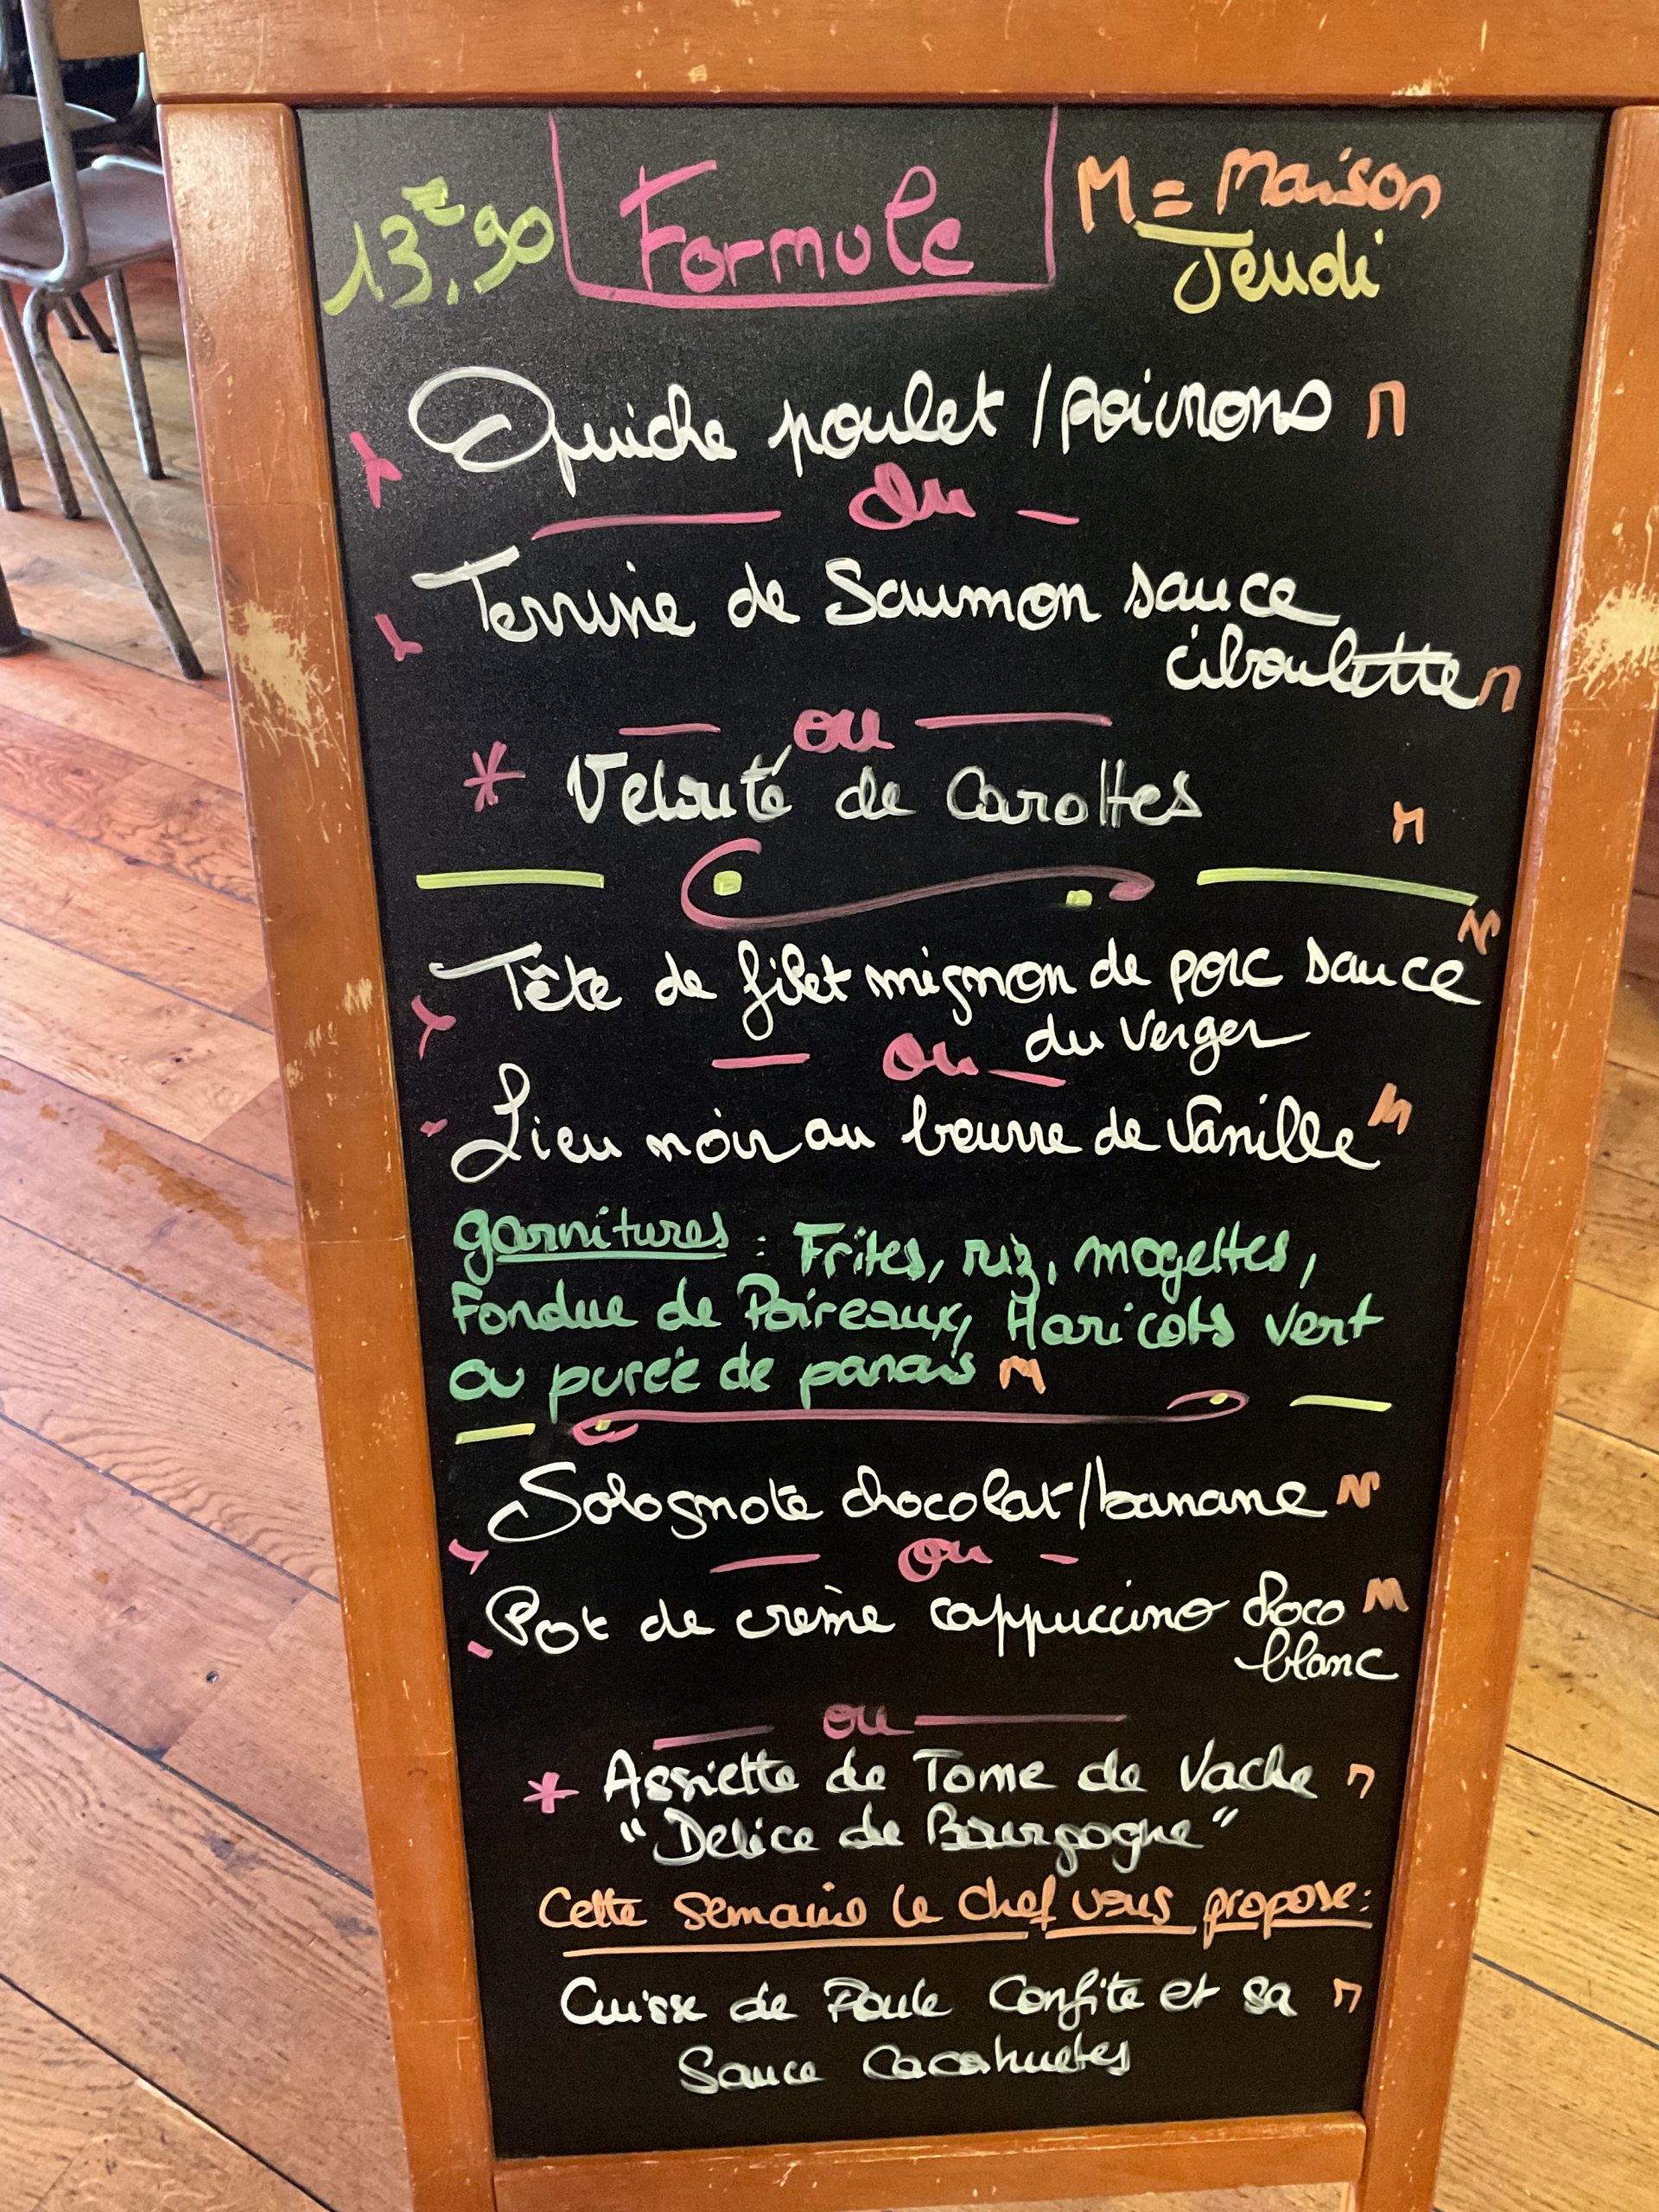 13€,90 Formule M = Maison
Jeudi
Quiche poulet / poivrons M
ou
Terrine de Saumon sauce
ciboulette M
ou
* Velouté de Carottes M
Tête de filet mignon de porc sauce M
du verger
ou
Lieu noir au beurre de Vanille M
garnitures : Frites, riz, mogettes,
Fondue de Poireaux, Haricots vert
ou purée de panais M
Solognote chocolat/banane M
ou
Pot de crème cappuccino choco M
blanc
ou
* Assiette de Tome de Vache M
"Delice de Bourgogne"
Cette semaine le chef vous propose:
Cuisse de Poule Confite et sa M
Sauce Cacahuetes